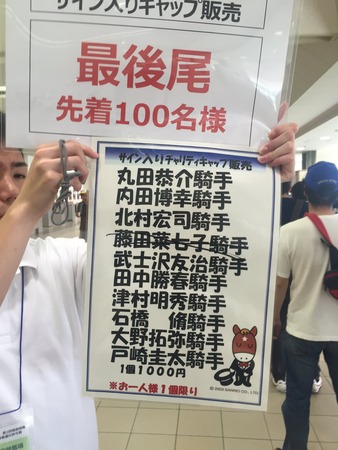 サイン入りキャップ販売
最後尾
先着100名様
サイン入りチャリティキャップ販売
丸田恭介騎手
内田博幸騎手
北村宏司騎手
藤田菜七子騎手
武士沢友治騎手
田中勝春騎手
津村明秀騎手
石橋 脩騎手
大野拓弥騎手
戸崎圭太騎手
1個1000円
※お一人様1個限り